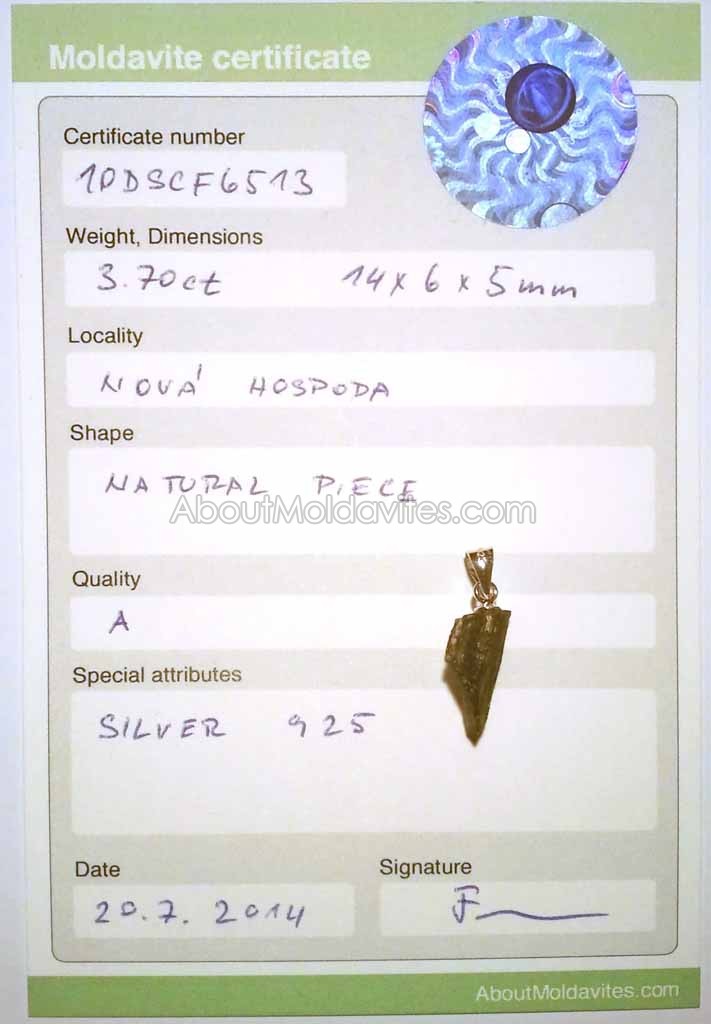 Moldavite certificate
Certificate number
10DSCF6513
Weight, Dimensions
3.70ct 14 x 6 x 5 mm
Locality
NOVÁ HOSPODA
Shape
NATURAL PIECE
AboutMoldavites.com
Quality
A
Special attributes
SILVER 925
Date
Signature
20.7.2014
AboutMoldavites.com